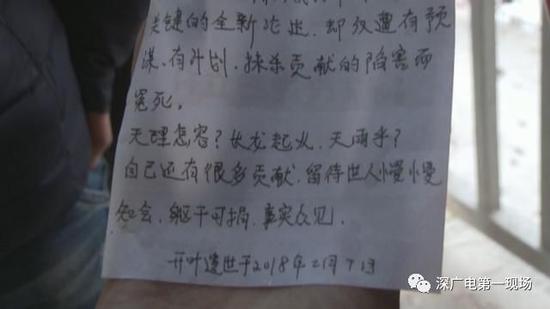 关键的全新论出，却仅遭有预
谋、有计划，抹杀贡献的陷害而
冤死。
天理怎容？长龙起火，天雨乎？
自己还有很多贡献，留待世人慢慢
知会，躯干可捐，事实众见。
于2018年2月7日
深广电第一现场